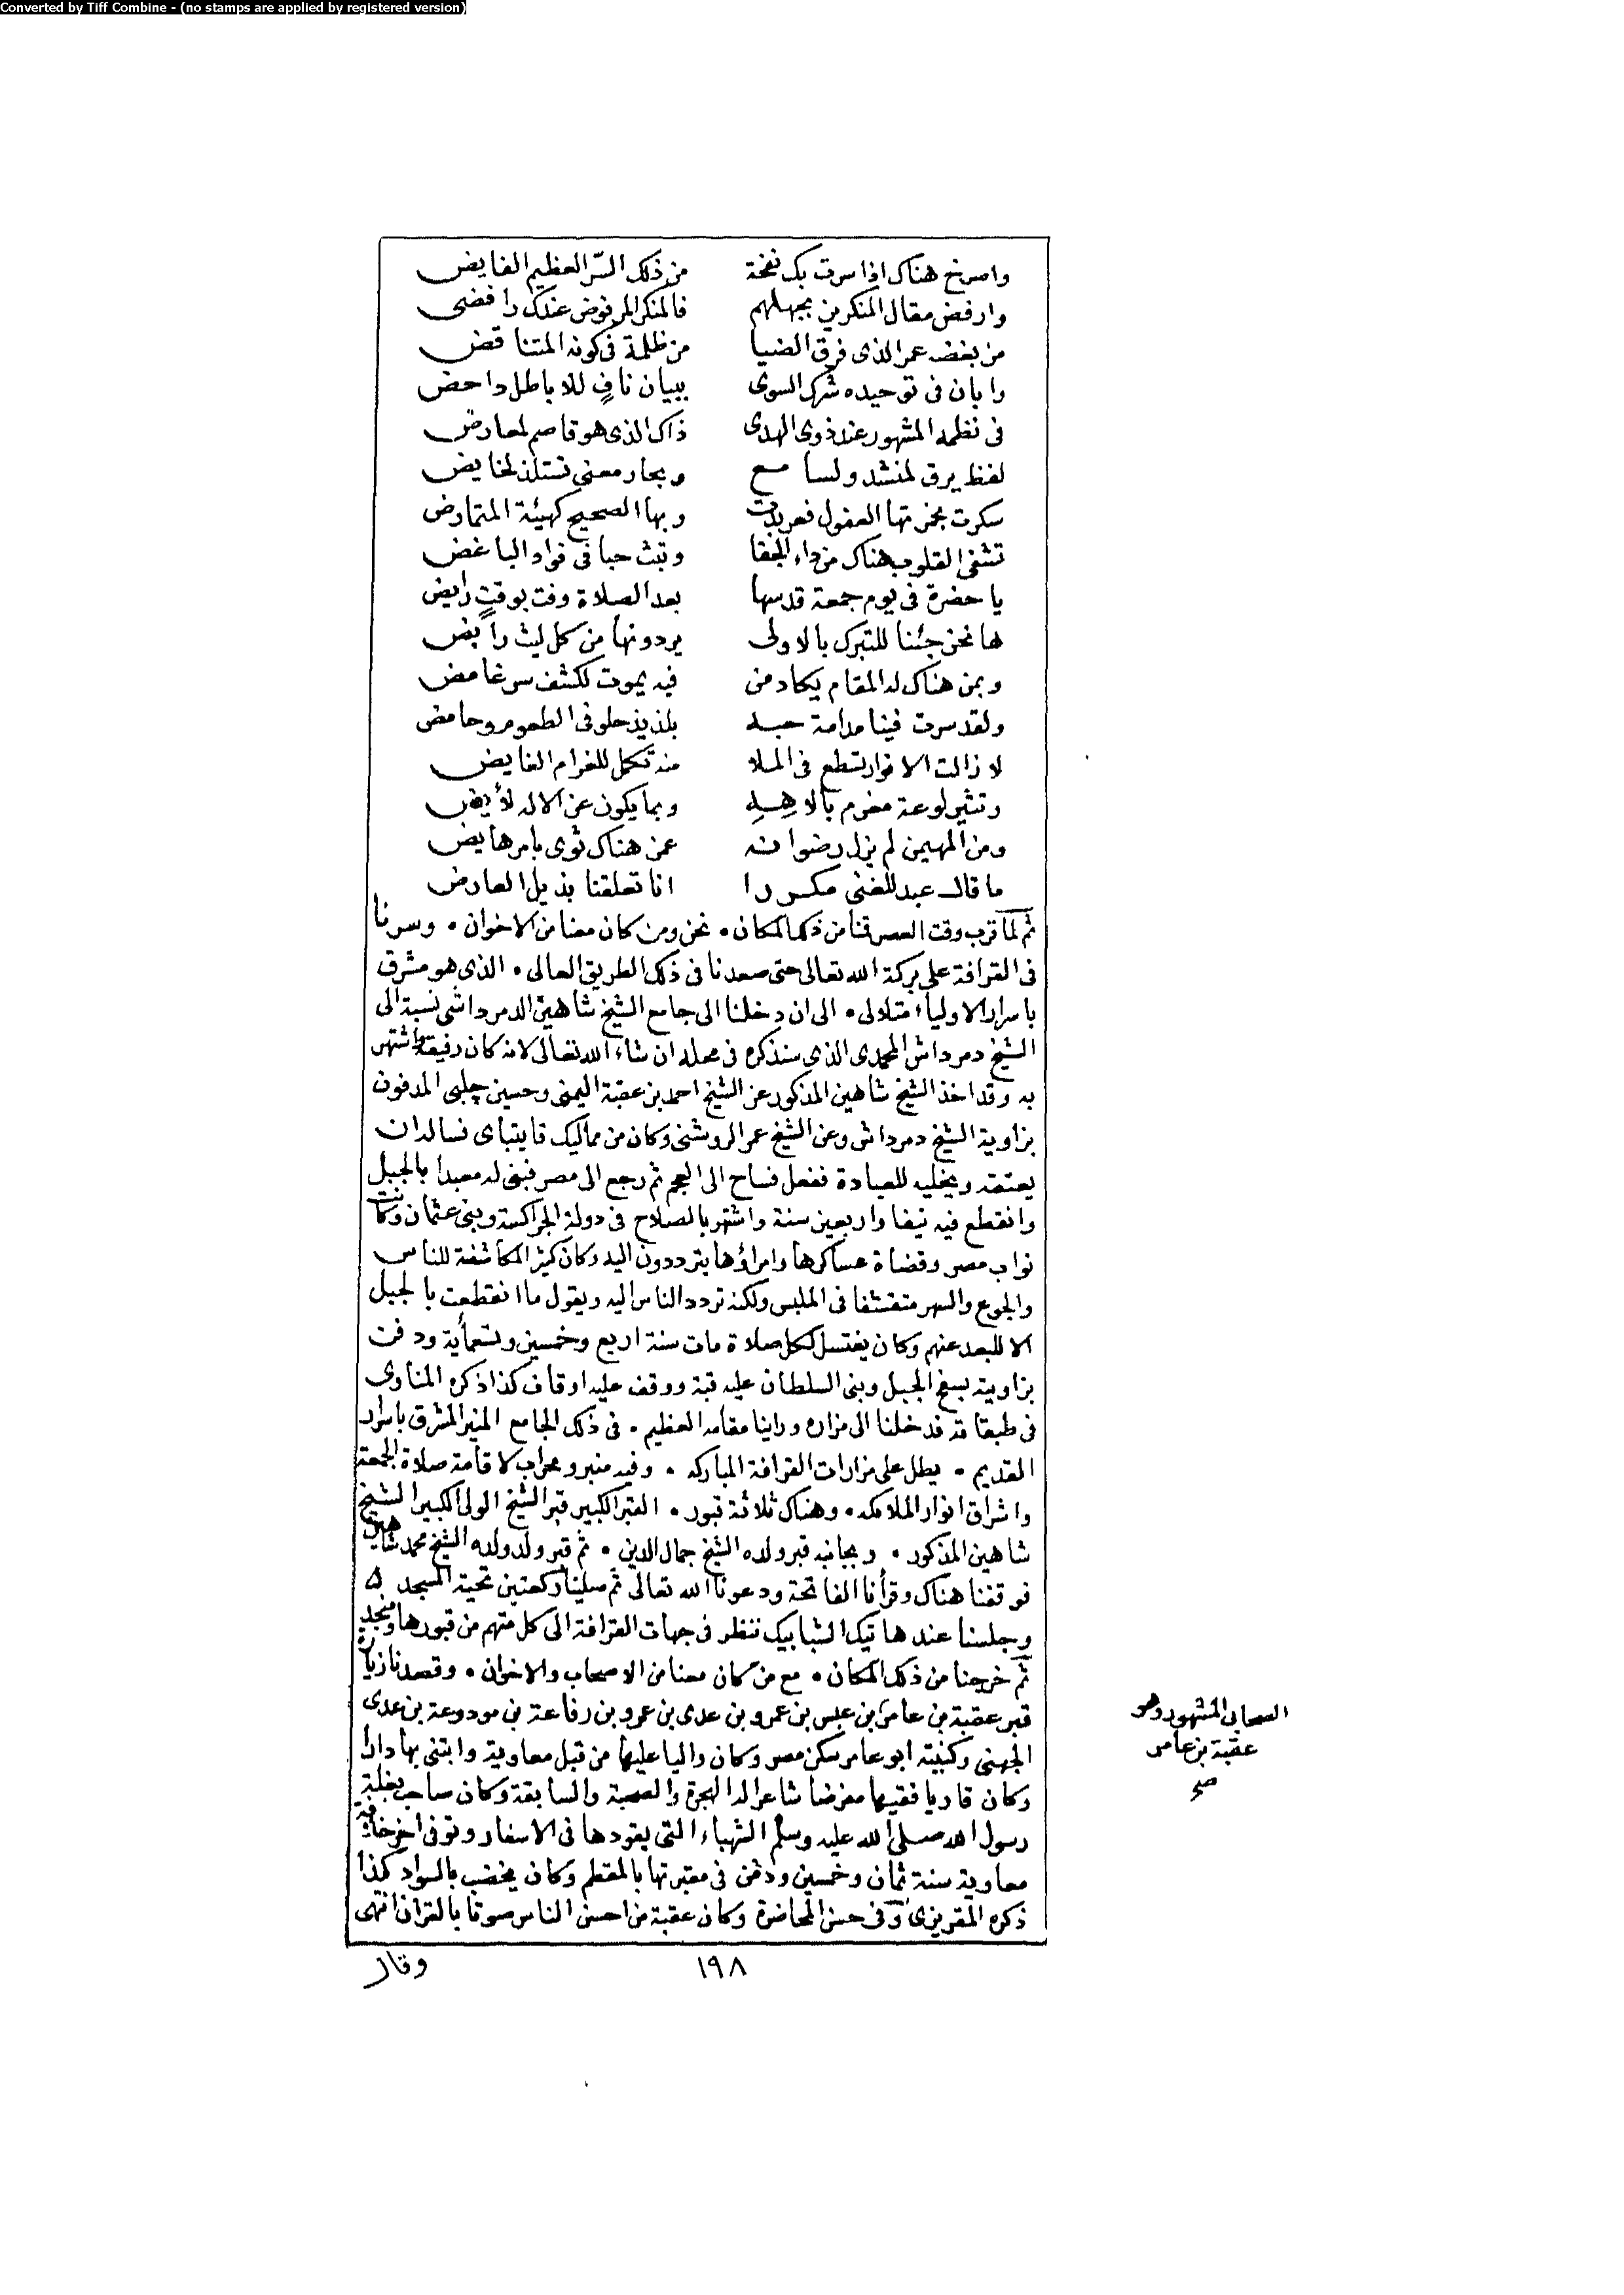 Converted by Tiff Combine - (no stamps are applied by registered version)
واصرخ هناك اذا سرت بك نفحة من ذلك السّر العظيم الفايض
وارفض مقال المنكرين بجهلهم فالمنكر المرفوض عندك رافضى
من بغضه عمر الذى فرق الضيا من ظلمة فى كونه المتناقض
وابان فى توحيده شرك السوى ببيان نافٍ للاباطل داحض
فى نظمه المشهور عند ذوى الهدى ذاك الذى هو قاصم لمعارض
لفظ يرق لمنشد ولسامع وبحار معنى تستلذ لخايض
سكرت بخمرتها العقول فعربدت وبها الصحيح كهيئة المتمارض
تشفى القلوب هناك من داء الجفا وتبث حبا فى فواد الباغض
يا حضرة فى يوم جمعة قدسها بعد الصلاة وفت بوقتٍ رايض
ها نحن جئنا للتبرك بالاولى يردونها من كل ليث رابض
وبمن هناك له المقام يكاد من فيه يموت لكشف سر غامض
ولقد سرت فينا مدامة حبه بلذيذ حلو فى الطعوم وحامض
لا زالت الانوار تسطع فى الملا منه تكمل للغرام الغايض
وتثير لوعة مغرم بالاهِلِهِ وبما يكون عن الاله لأيض
ومن المهيمن لم يزل رضوانه عمن هناك ثوى بامر هايض
ما قال عبد للغنى مكررا انا تعلقنا بذيل العارض
ثم لما قرب وقت العصر قمنا من ذلك المكان • نحن ومن كان معنا من الاخوان • وسرنا
فى القرافة على بركة الله تعالى حتى صعدنا فى ذلك الطريق العالى • الذى هو مشرق
باسرار الاولياء متلالى • الى ان دخلنا الى جامع الشيخ شاهين الدمرداشى نسبة الى
الشيخ دمرداش المحمدى الذى سنذكره فى محله ان شاء الله تعالى لانه كان رفيقه واشتهر
به وقد اخذ الشيخ شاهين المذكور عن الشيخ احمد بن عقبة اليمنى وحسين چلبى المدفون
بزاوية الشيخ دمرداش وعن الشيخ عمر الروشنى وكان من مماليك قايتباى فساله ان
يعتقه ويخليه للعبادة ففعل فساح الى العجم ثم رجع الى مصر فبنى له معبدا بالجبل
وانقطع فيه نيفا واربعين سنة واشتهر بالصلاح فى دولة الجراكسة وبنى عثمان وكانت
نواب مصر وقضاة عساكرها وامراؤها يترددون اليه وكان كثير المكاشفة للناس
والجوع والسهر متقشفا فى الملبس ولكنه تردد الناس اليه ويقول ما انقطعت بالجبل
الا للبعد عنهم وكان يغتسل لكل صلاة مات سنة اربع وخمسين وتسعمأية ودفن
بزاوية بسفح الجبل وبنى السلطان عليه قبة ووقف عليه اوقاف كذا ذكره المناوى
فى طبقاته فدخلنا الى مزاره وراينا مقامه العظيم • فى ذلك الجامع المنير المشرق باسرار
القديم • يطل على مزارات القرافة المباركه • وفيه منبر ومحراب لاقامة صلاة الجمعة
واشراق انوار الملايكه • وهناك ثلاثة قبور • القبر الكبير قبر الشيخ الولى الكبير الشيخ
شاهين المذكور • وبجانبه قبر ولده الشيخ جمال الدين • ثم قبر ولد ولده الشيخ محمد شاهين
فوقفنا هناك وقرأنا الفاتحة ودعونا الله تعالى ثم صلينا ركعتين تحية المسجد
وجلسنا عند هاتيك الشبابيك ننظر فى جهات القرافة الى كل متهم من قبورها ومنجد
ثم خرجنا من ذلك المكان • مع من كان معنا من الاصحاب والاخوان • وقصدنا زيارة
قبر عقبة بن عامر بن عبس بن عمرو بن عدى بن عمرو بن رفاعة بن مودوعة بن عدى
الجهنى وكنيته ابو عامر سكن مصر وكان واليا عليها من قبل معاوية وابتنى بها دارا
وكان قاريا فقيها مفرضا شاعرا له الهجرة والصحبة والسابقة وكان صاحب بغلة
رسول الله صلى الله عليه وسلم الشهباء التى يقودها فى الاسفار وتوفى اخر خلافة
معاوية سنة ثمان وخمسين ودفن فى مقبرتها بالمقطم وكان يخضب بالسواد كذا
ذكره المقريزى وفى حسن المحاضرة وكان عقبة من احسن الناس صوتا بالقران انتهى
الصحابى المشهور وهو
عقبة بن عامر
صح
١٩٨
وقال